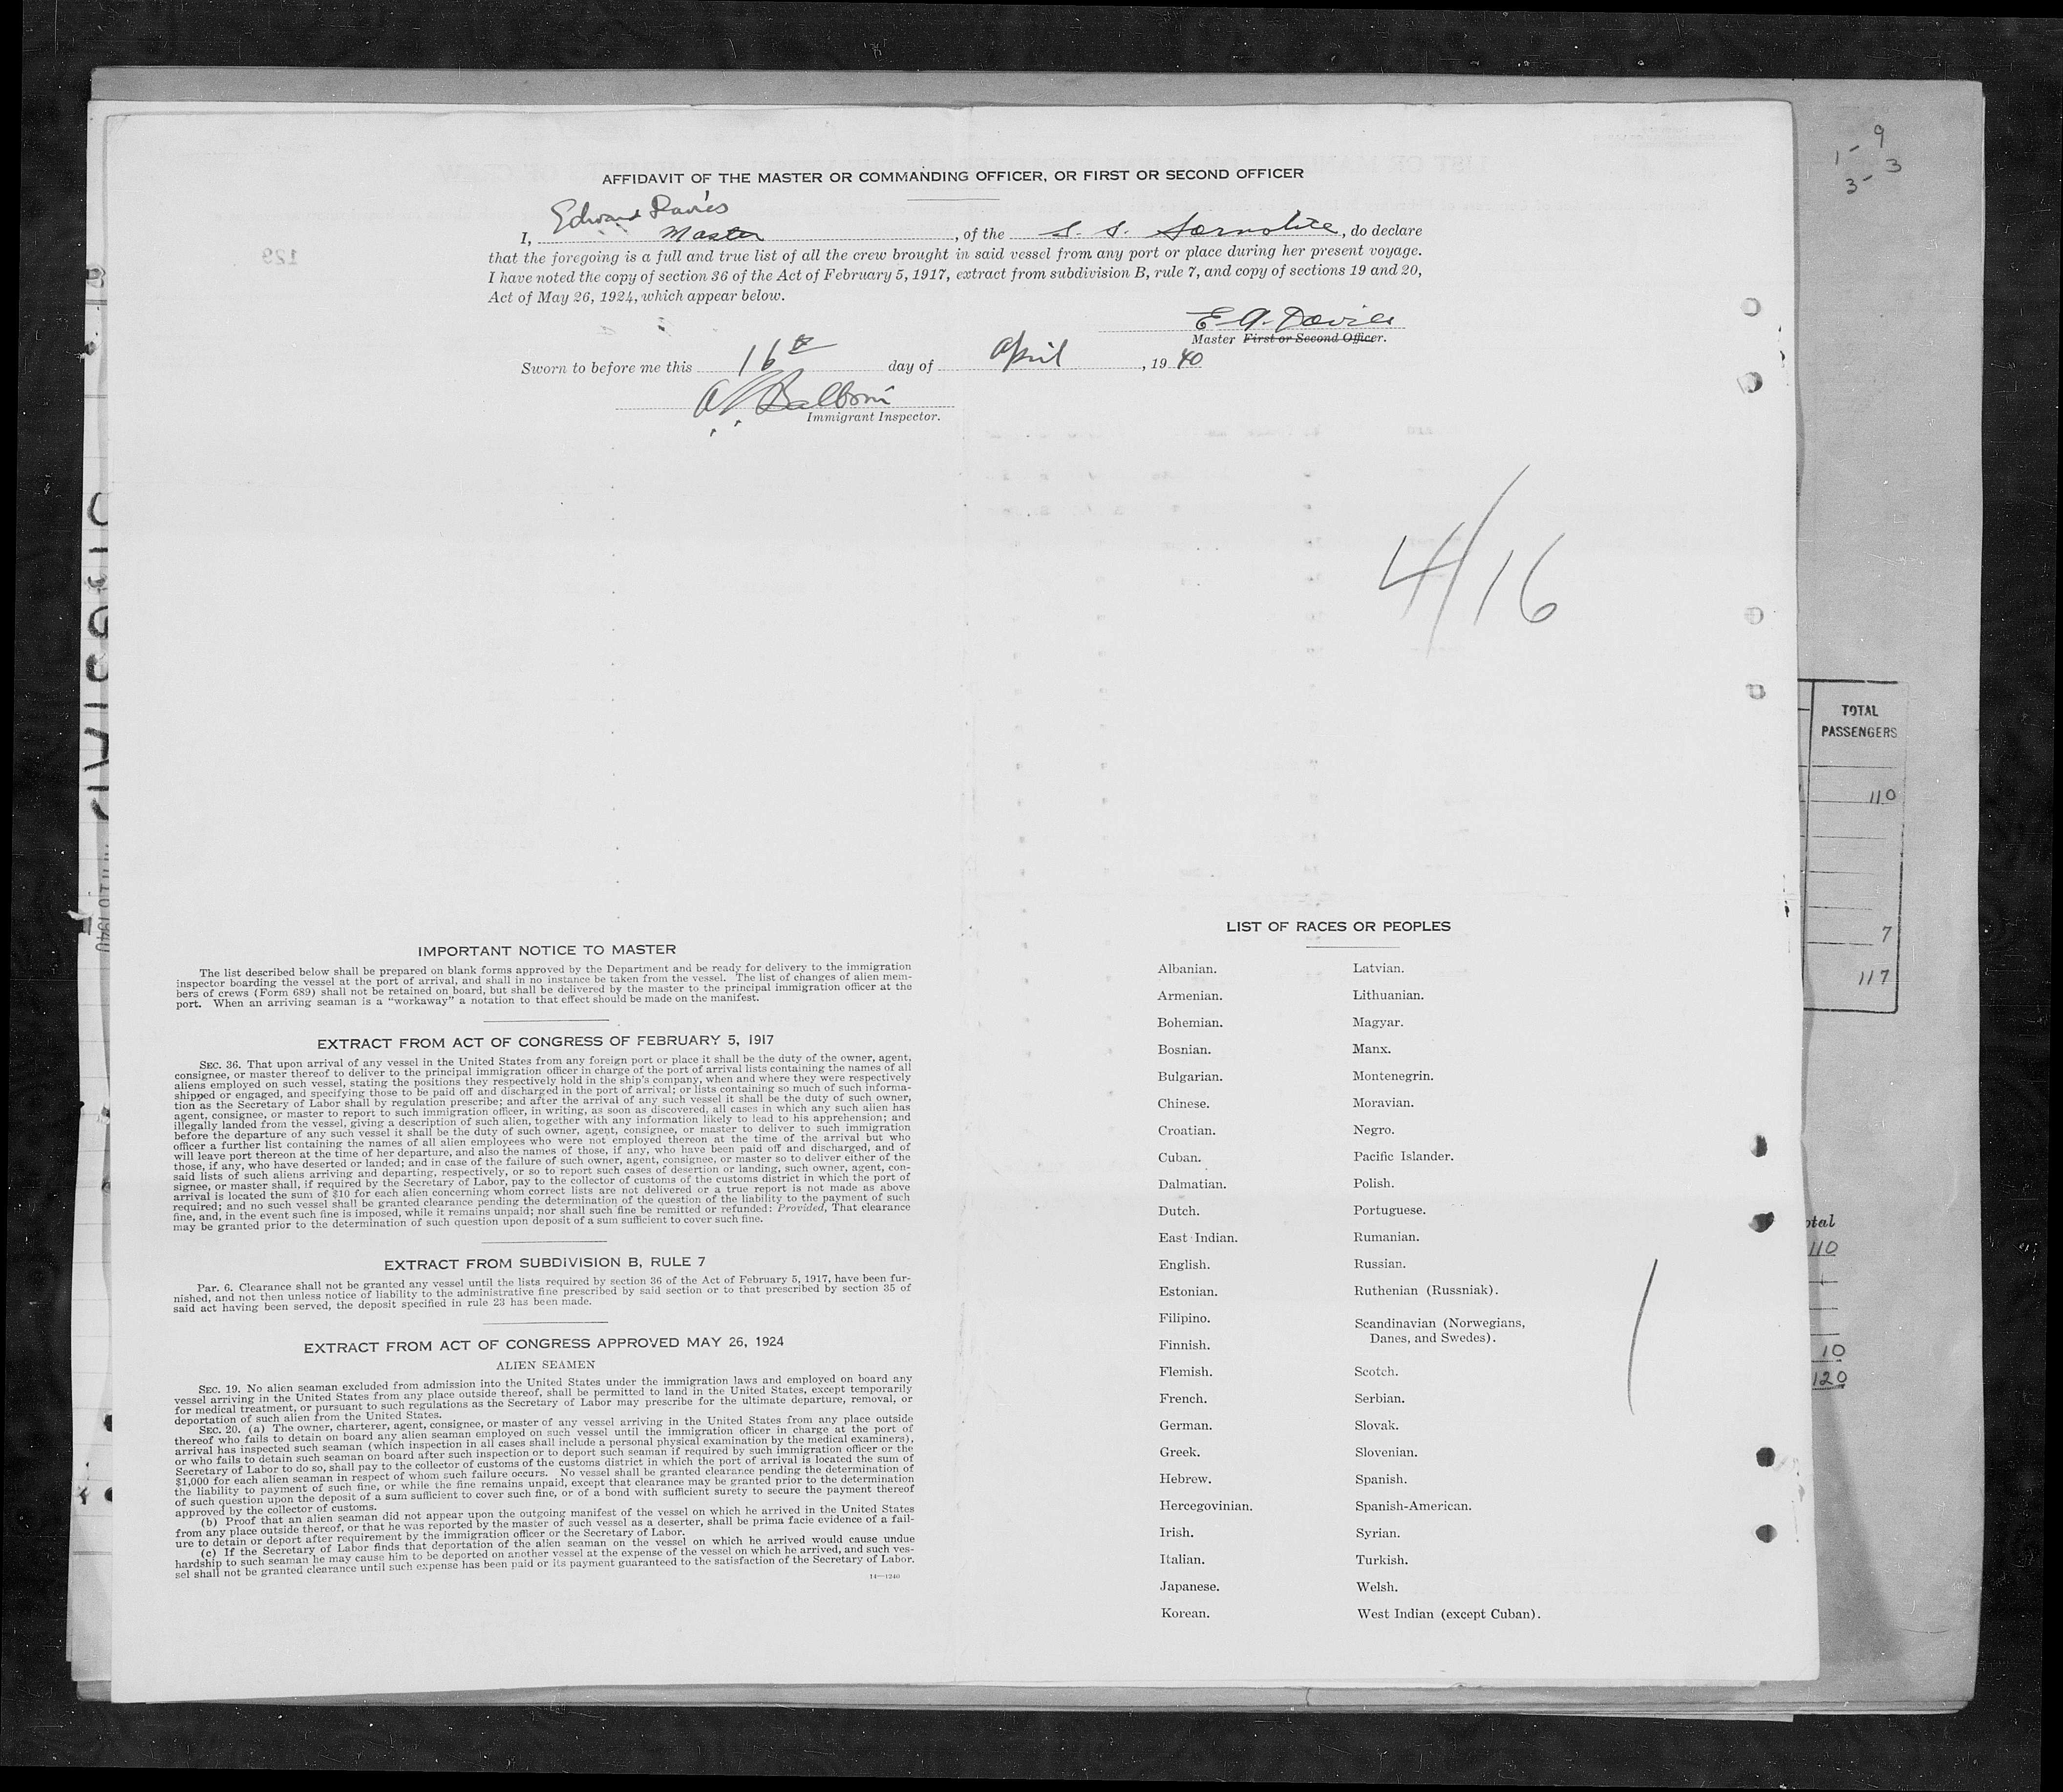 AFFIDAVIT OF THE MASTER OR COMMANDING OFFICER, OR FIRST OR SECOND OFFICER
Edward Davies
I, Master, of the S. S. , do declare
that the foregoing is a full and true list of all the crew brought in said vessel from any port or place during her present voyage.
I have noted the copy of section 36 of the Act of February 5, 1917, extract from subdivision B, rule 7, and copy of sections 19 and 20,
Act of May 26, 1924, which appear below.
E A. Davies
Master First or Second Officer.
Sworn to before me this 16th day of April, 1940
Immigrant Inspector.
1 - 9
3 - 3
129
4/16
TOTAL
PASSENGERS
110
7
117
otal
110
10
120
IMPORTANT NOTICE TO MASTER
The list described below shall be prepared on blank forms approved by the Department and be ready for delivery to the immigration
inspector boarding the vessel at the port of arrival, and shall in no instance be taken from the vessel. The list of changes of alien mem-
bers of crews (Form 689) shall not be retained on board, but shall be delivered by the master to the principal immigration officer at the
port. When an arriving seaman is a "workaway" a notation to that effect should be made on the manifest.
EXTRACT FROM ACT OF CONGRESS OF FEBRUARY 5, 1917
SEC. 36. That upon arrival of any vessel in the United States from any foreign port or place it shall be the duty of the owner, agent,
consignee, or master thereof to deliver to the principal immigration officer in charge of the port of arrival lists containing the names of all
aliens employed on such vessel, stating the positions they respectively hold in the ship's company, when and where they were respectively
shipped or engaged, and specifying those to be paid off and discharged in the port of arrival; or lists containing so much of such informa-
tion as the Secretary of Labor shall by regulation prescribe; and after the arrival of any such vessel it shall be the duty of such owner,
agent, consignee, or master to report to such immigration officer, in writing, as soon as discovered, all cases in which any such alien has
illegally landed from the vessel, giving a description of such alien, together with any information likely to lead to his apprehension; and
before the departure of any such vessel it shall be the duty of such owner, agent, consignee, or master to deliver to such immigration
officer a further list containing the names of all alien employees who were not employed thereon at the time of the arrival but who
will leave port thereon at the time of her departure, and also the names of those, if any, who have been paid off and discharged, and of
those, if any, who have deserted or landed; and in case of the failure of such owner, agent, consignee, or master so to deliver either of the
said lists of such aliens arriving and departing, respectively, or so to report such cases of desertion or landing, such owner, agent, con-
signee, or master shall, if required by the Secretary of Labor, pay to the collector of customs of the customs district in which the port of
arrival is located the sum of $10 for each alien concerning whom correct lists are not delivered or a true report is not made as above
required; and no such vessel shall be granted clearance pending the determination of the question of the liability to the payment of such
fine, and, in the event such fine is imposed, while it remains unpaid; nor shall such fine be remitted or refunded: Provided, That clearance
may be granted prior to the determination of such question upon deposit of a sum sufficient to cover such fine.
EXTRACT FROM SUBDIVISION B, RULE 7
Par. 6. Clearance shall not be granted any vessel until the lists required by section 36 of the Act of February 5, 1917, have been fur-
nished, and not then unless notice of liability to the administrative fine prescribed by said section or to that prescribed by section 35 of
said act having been served, the deposit specified in rule 23 has been made.
EXTRACT FROM ACT OF CONGRESS APPROVED MAY 26, 1924
ALIEN SEAMEN
SEC. 19. No alien seaman excluded from admission into the United States under the immigration laws and employed on board any
vessel arriving in the United States from any place outside thereof, shall be permitted to land in the United States, except temporarily
for medical treatment, or pursuant to such regulations as the Secretary of Labor may prescribe for the ultimate departure, removal, or
deportation of such alien from the United States.
SEC. 20. (a) The owner, charterer, agent, consignee, or master of any vessel arriving in the United States from any place outside
thereof who fails to detain on board any alien seaman employed on such vessel until the immigration officer in charge at the port of
arrival has inspected such seaman (which inspection in all cases shall include a personal physical examination by the medical examiners),
or who fails to detain such seaman on board after such inspection or to deport such seaman if required by such immigration officer or the
Secretary of Labor to do so, shall pay to the collector of customs of the customs district in which the port of arrival is located the sum of
$1,000 for each alien seaman in respect of whom such failure occurs. No vessel shall be granted clearance pending the determination of
the liability to payment of such fine, or while the fine remains unpaid, except that clearance may be granted prior to the determination
of such question upon the deposit of a sum sufficient to cover such fine, or of a bond with sufficient surety to secure the payment thereof
approved by the collector of customs.
(b) Proof that an alien seaman did not appear upon the outgoing manifest of the vessel on which he arrived in the United States
from any place outside thereof, or that he was reported by the master of such vessel as a deserter, shall be prima facie evidence of a fail-
ure to detain or deport after requirement by the immigration officer or the Secretary of Labor.
(c) If the Secretary of Labor finds that deportation of the alien seaman on the vessel on which he arrived would cause undue
hardship to such seaman he may cause him to be deported on another vessel at the expense of the vessel on which he arrived, and such ves-
sel shall not be granted clearance until such expense has been paid or its payment guaranteed to the satisfaction of the Secretary of Labor.
14—1240
LIST OF RACES OR PEOPLES
Albanian.
Armenian.
Bohemian.
Bosnian.
Bulgarian.
Chinese.
Croatian.
Cuban.
Dalmatian.
Dutch.
East Indian.
English.
Estonian.
Filipino.
Finnish.
Flemish.
French.
German.
Greek.
Hebrew.
Hercegovinian.
Irish.
Italian.
Japanese.
Korean.
Latvian.
Lithuanian.
Magyar.
Manx.
Montenegrin.
Moravian.
Negro.
Pacific Islander.
Polish.
Portuguese.
Rumanian.
Russian.
Ruthenian (Russniak).
Scandinavian (Norwegians,
Danes, and Swedes).
Scotch.
Serbian.
Slovak.
Slovenian.
Spanish.
Spanish-American.
Syrian.
Turkish.
Welsh.
West Indian (except Cuban).